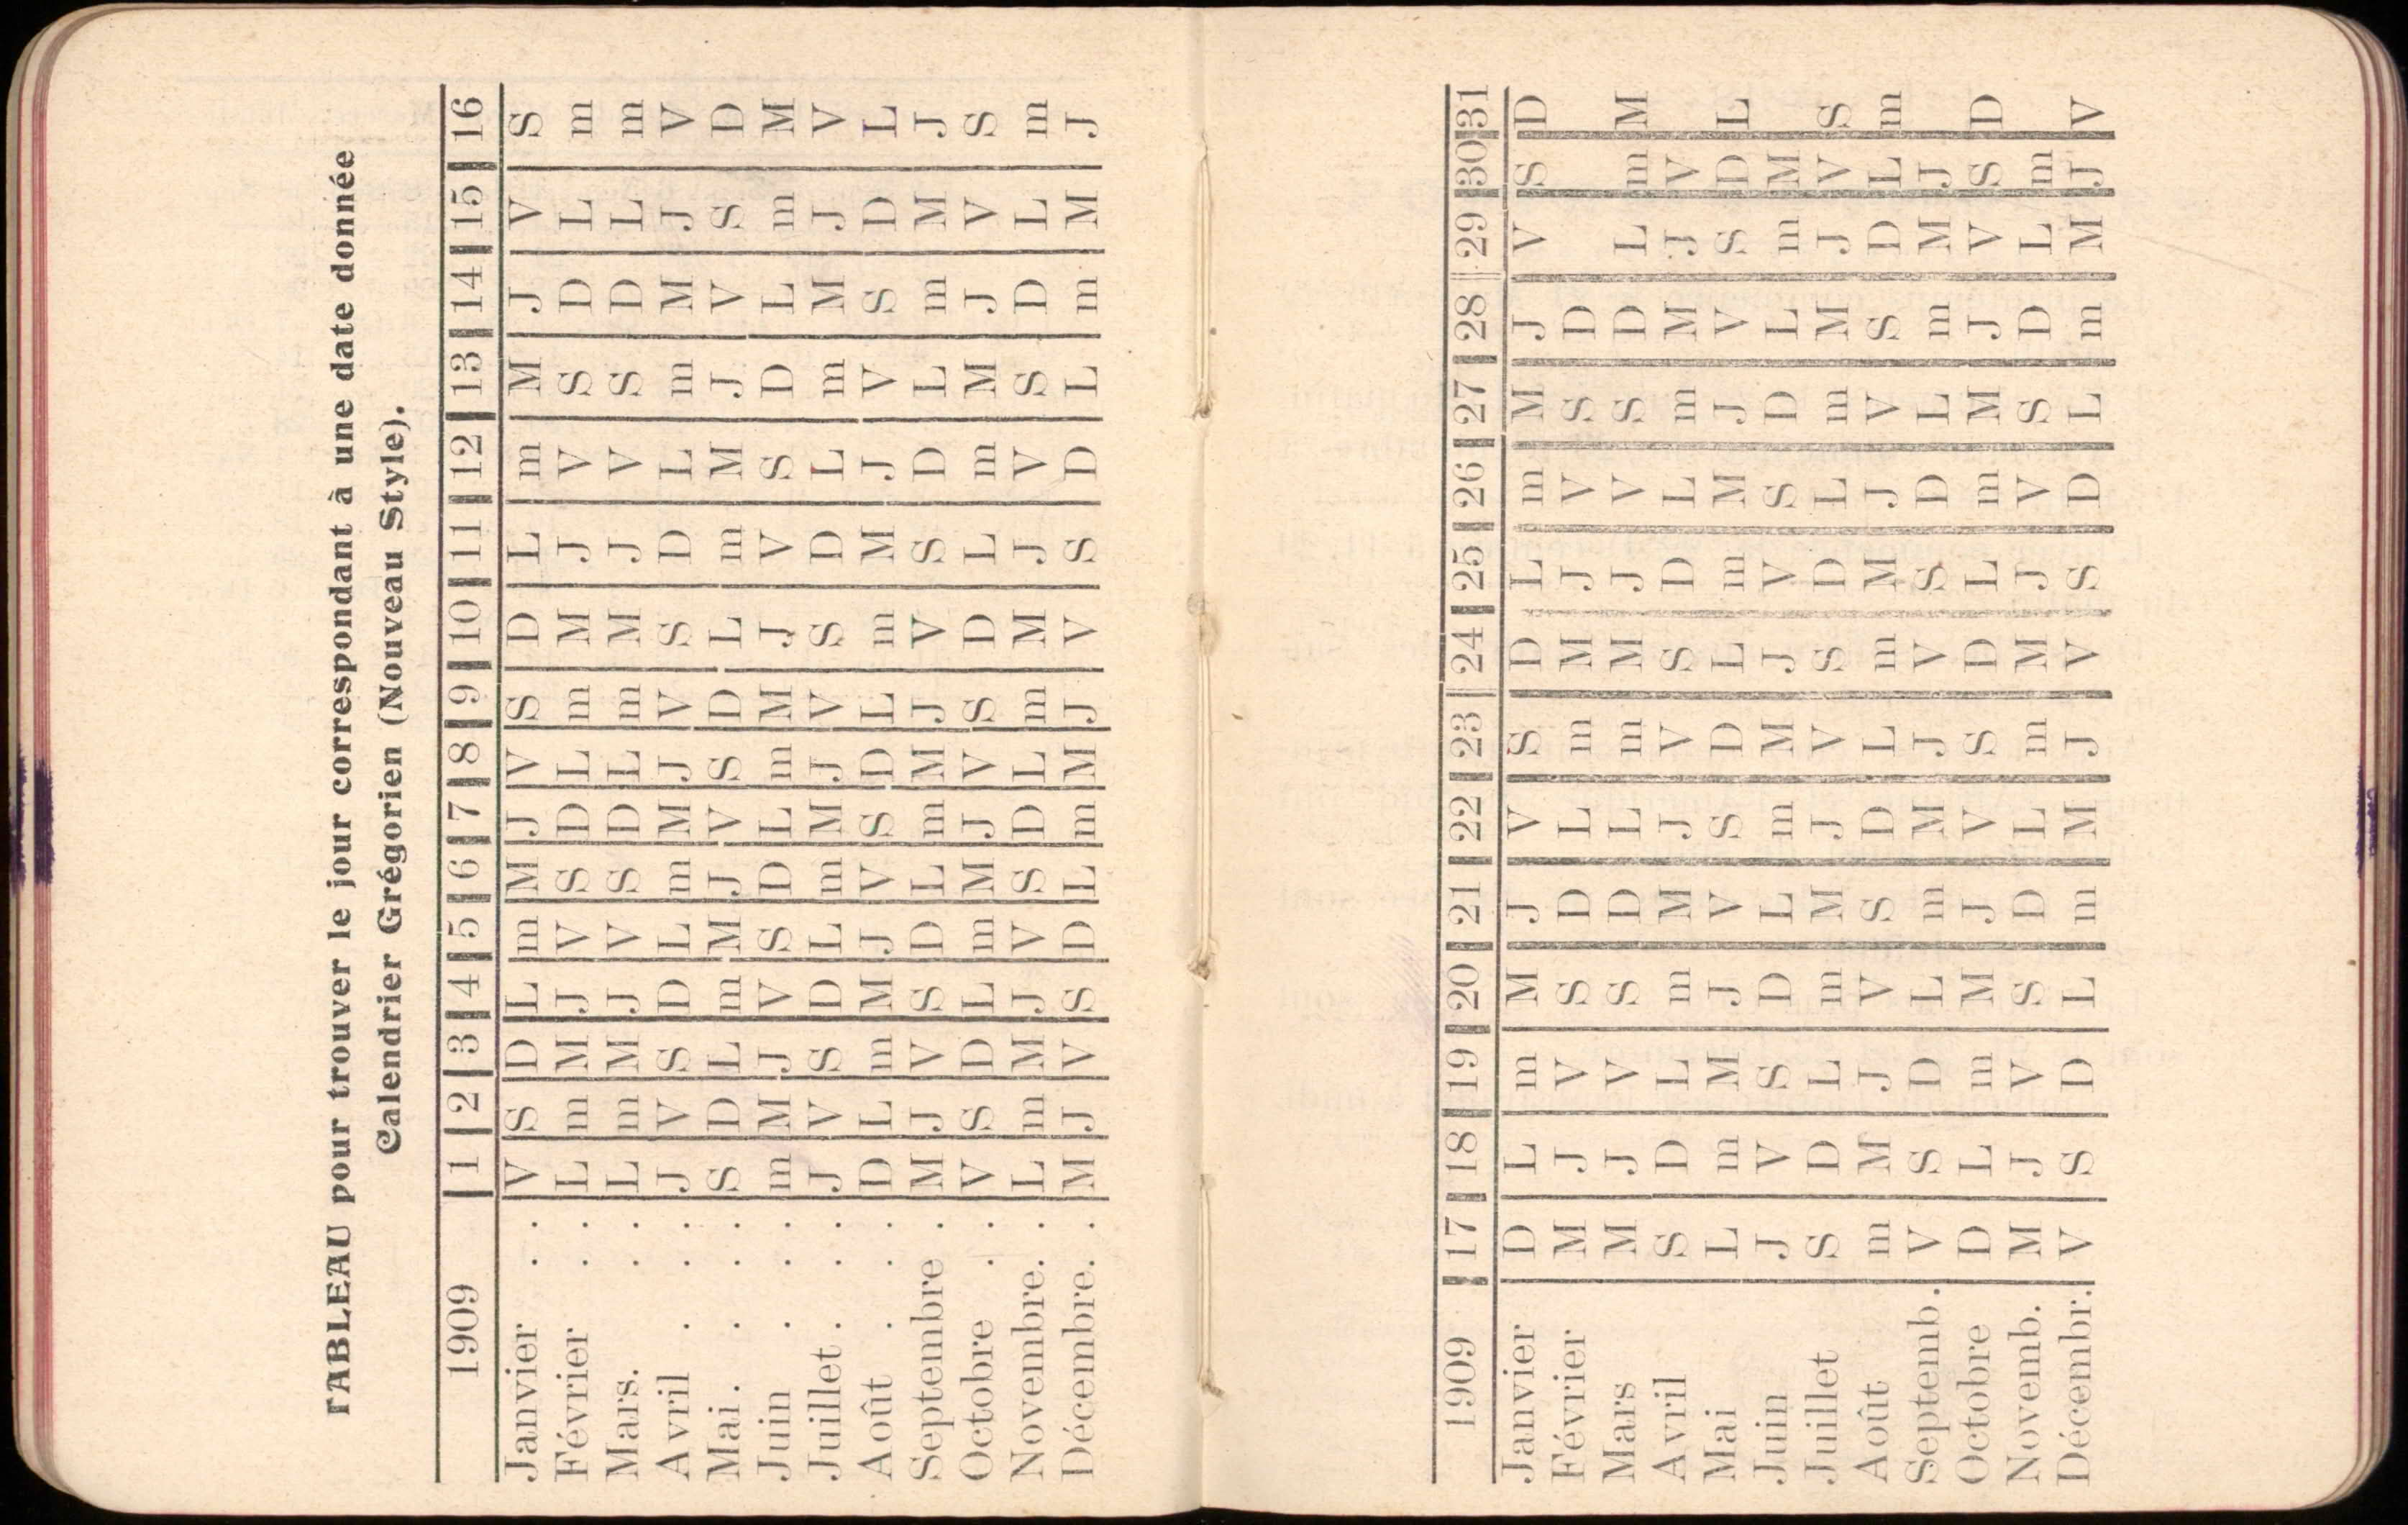 TABLEAU pour trouver le jour correspondant à une date donnée
Calendrier Grégorien (Nouveau Style).
1909 1 2 3 4 5 6 7 8 9 10 11 12 13 14 15 16
Janvier . . V S D L m M J V S D L m M J V S
Février . . L m M J V S D L m M J V S D L m
Mars. . . L m M J V S D L m M J V S D L m
Avril . . . J V S D L m M J V S D L m M J V
Mai . . . . S D L m M J V S D L m M J V S D
Juin . . . m M J V S D L m M J V S D L m M
Juillet . . . J V S D L m M J V S D L m M J V
Août . . . D L m M J V S D L m M J V S D L
Septembre . M J V S D L m M J V S D L m M J
Octobre . . V S D L m M J V S D L m M J V S
Novembre. . L m M J V S D L m M J V S D L m
Décembre. . M J V S D L m M J V S D L m M J
1909 17 18 19 20 21 22 23 24 25 26 27 28 29 30 31
Janvier D L m M J V S D L m M J V S D
Février M J V S D L m M J V S D
Mars M J V S D L m M J V S D L m M
Avril S D L m M J V S D L m M J V
Mai L m M J V S D L m M J V S D L
Juin J V S D L m M J V S D L m M
Juillet S D L m M J V S D L m M J V S
Août m M J V S D L m M J V S D L m
Septemb. V S D L m M J V S D L m M J
Octobre D L m M J V S D L m M J V S D
Novemb. M J V S D L m M J V S D L m
Décembr. V S D L m M J V S D L m M J V